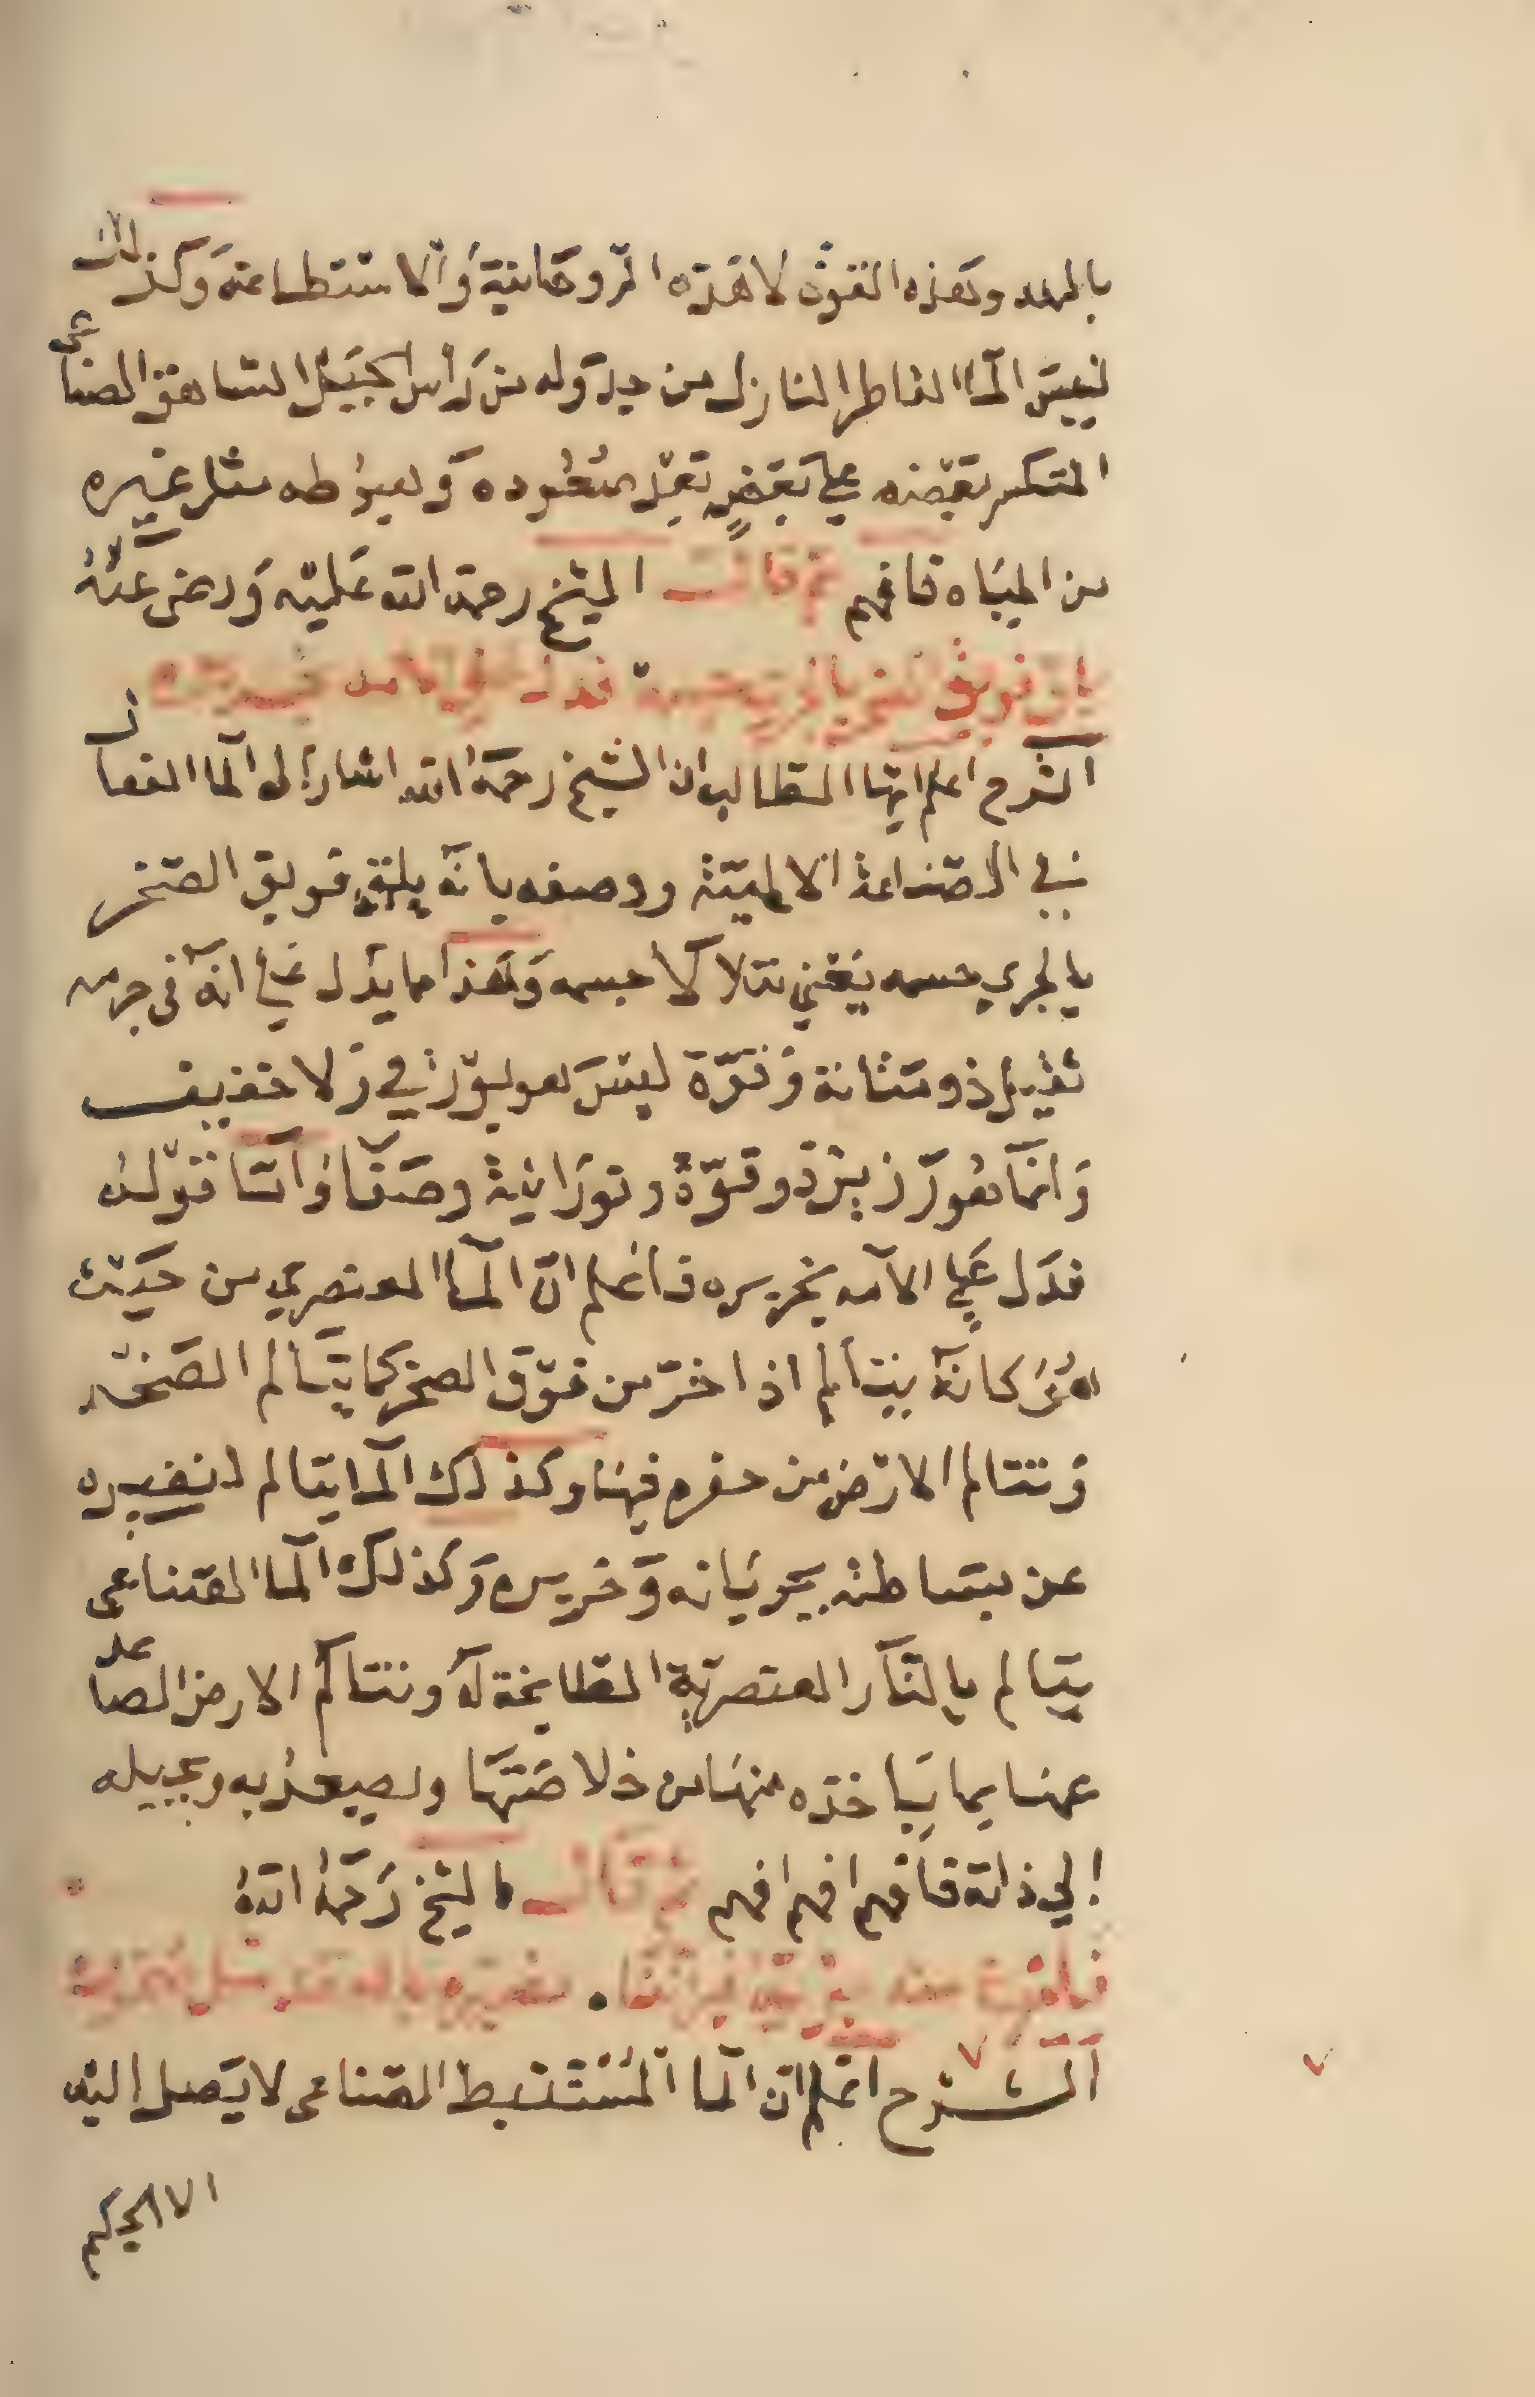 بالمهد وهذه القوة لا هذه الروحانية والاستطاعة وكذلك
ليس الماء القاطر النازل من جدوله من راس الجبل الشاهق الصناعى
المتكسر بعضه على بعض بعد صعوده وهبوطه مثل غيره
من المياه فافهم ثم قال الشيخ رحمة الله عليه ورضى عنه
فويق بالجرى جسمه فدل على خريره
الشرح اعلم ايها الطالب ان الشيخ رحمه الله اشار الى الماء الفعال
فى الصناعة الالهية ووصفه بانه يلقى فويق الصخر
بالجرى جسمه يعنى تتلاكا جسمه وهذا ما يدل على انه فى جرمه
ثقيل ذو متانة وقوة ليس هو بورقى ولا خفيف
وانما هو رزين ذو قوة ونورانية وصفا واما قوله
فدل على الآمه بخريره فاعلم ان الماء العنصرى من حيث
هو كانه يتالم اذا خر من فوق الصخر كما يتالم الصخر
وتتالم الارض من حفره فيها وكذلك الماء يتالم لتغييره
عن بساطته بجريانه وخريره وكذلك الماء الصناعى
يتالم بالنار العنصرية الطابخة له وتتالم الارض الصاعد
عنها بما ياخذه منها من خلاصتها ويصعد به ويحيله
الى ذاته فافهم افهم افهم ثم قال الشيخ رحمه الله

الشرح اعلم ان الماء المستنبط الصناعى لا يصل اليه
الا الحكيم